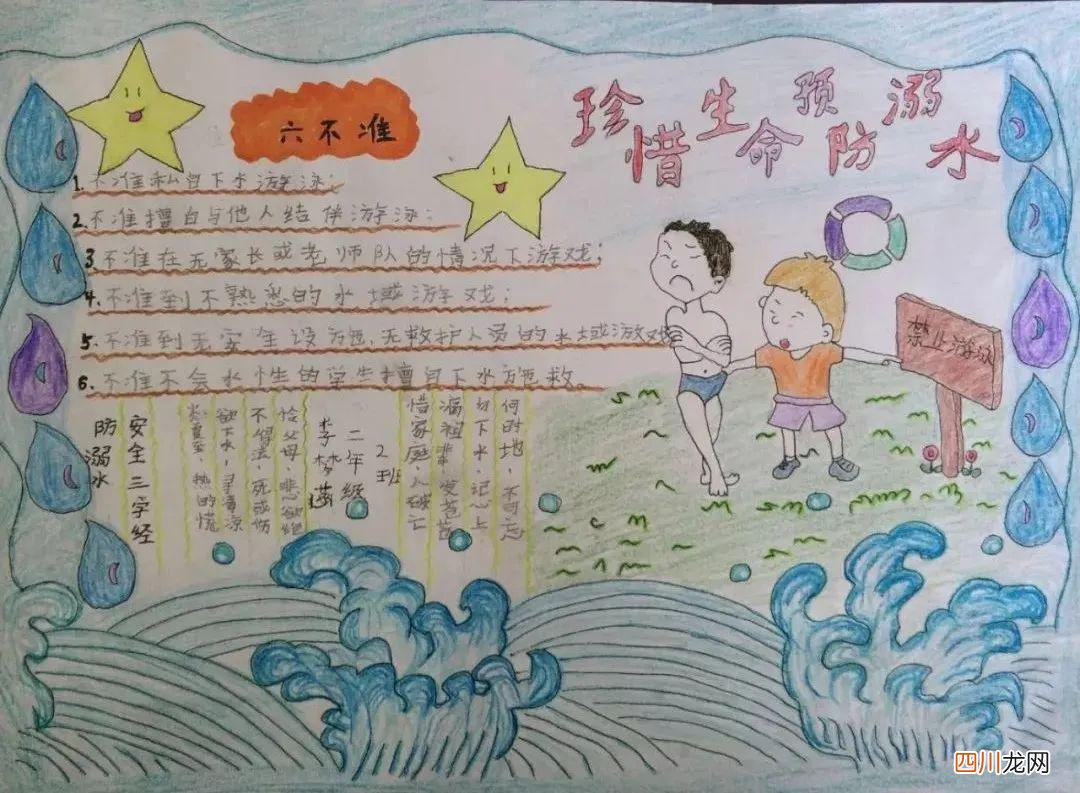 珍惜生命 预防溺水
六不准
1.不准私自下水游泳;
2.不准擅自与他人结伴游泳;
3.不准在无家长或老师队的情况下游戏;
4.不准到不熟悉的水域游戏;
5.不准到无安全设施、无救护人员的水域游戏
6.不准不会水性的学生擅自下水施救。
禁止游泳
防溺水
安全三字经
炎夏至,热的慌
欲下水,寻清凉
不得法,死或伤
给父母,悲欲绝
李梦菡
二年级
2班
惜家庭,人破亡
何时地,不可忘
勿下水,记心上
四川龙网